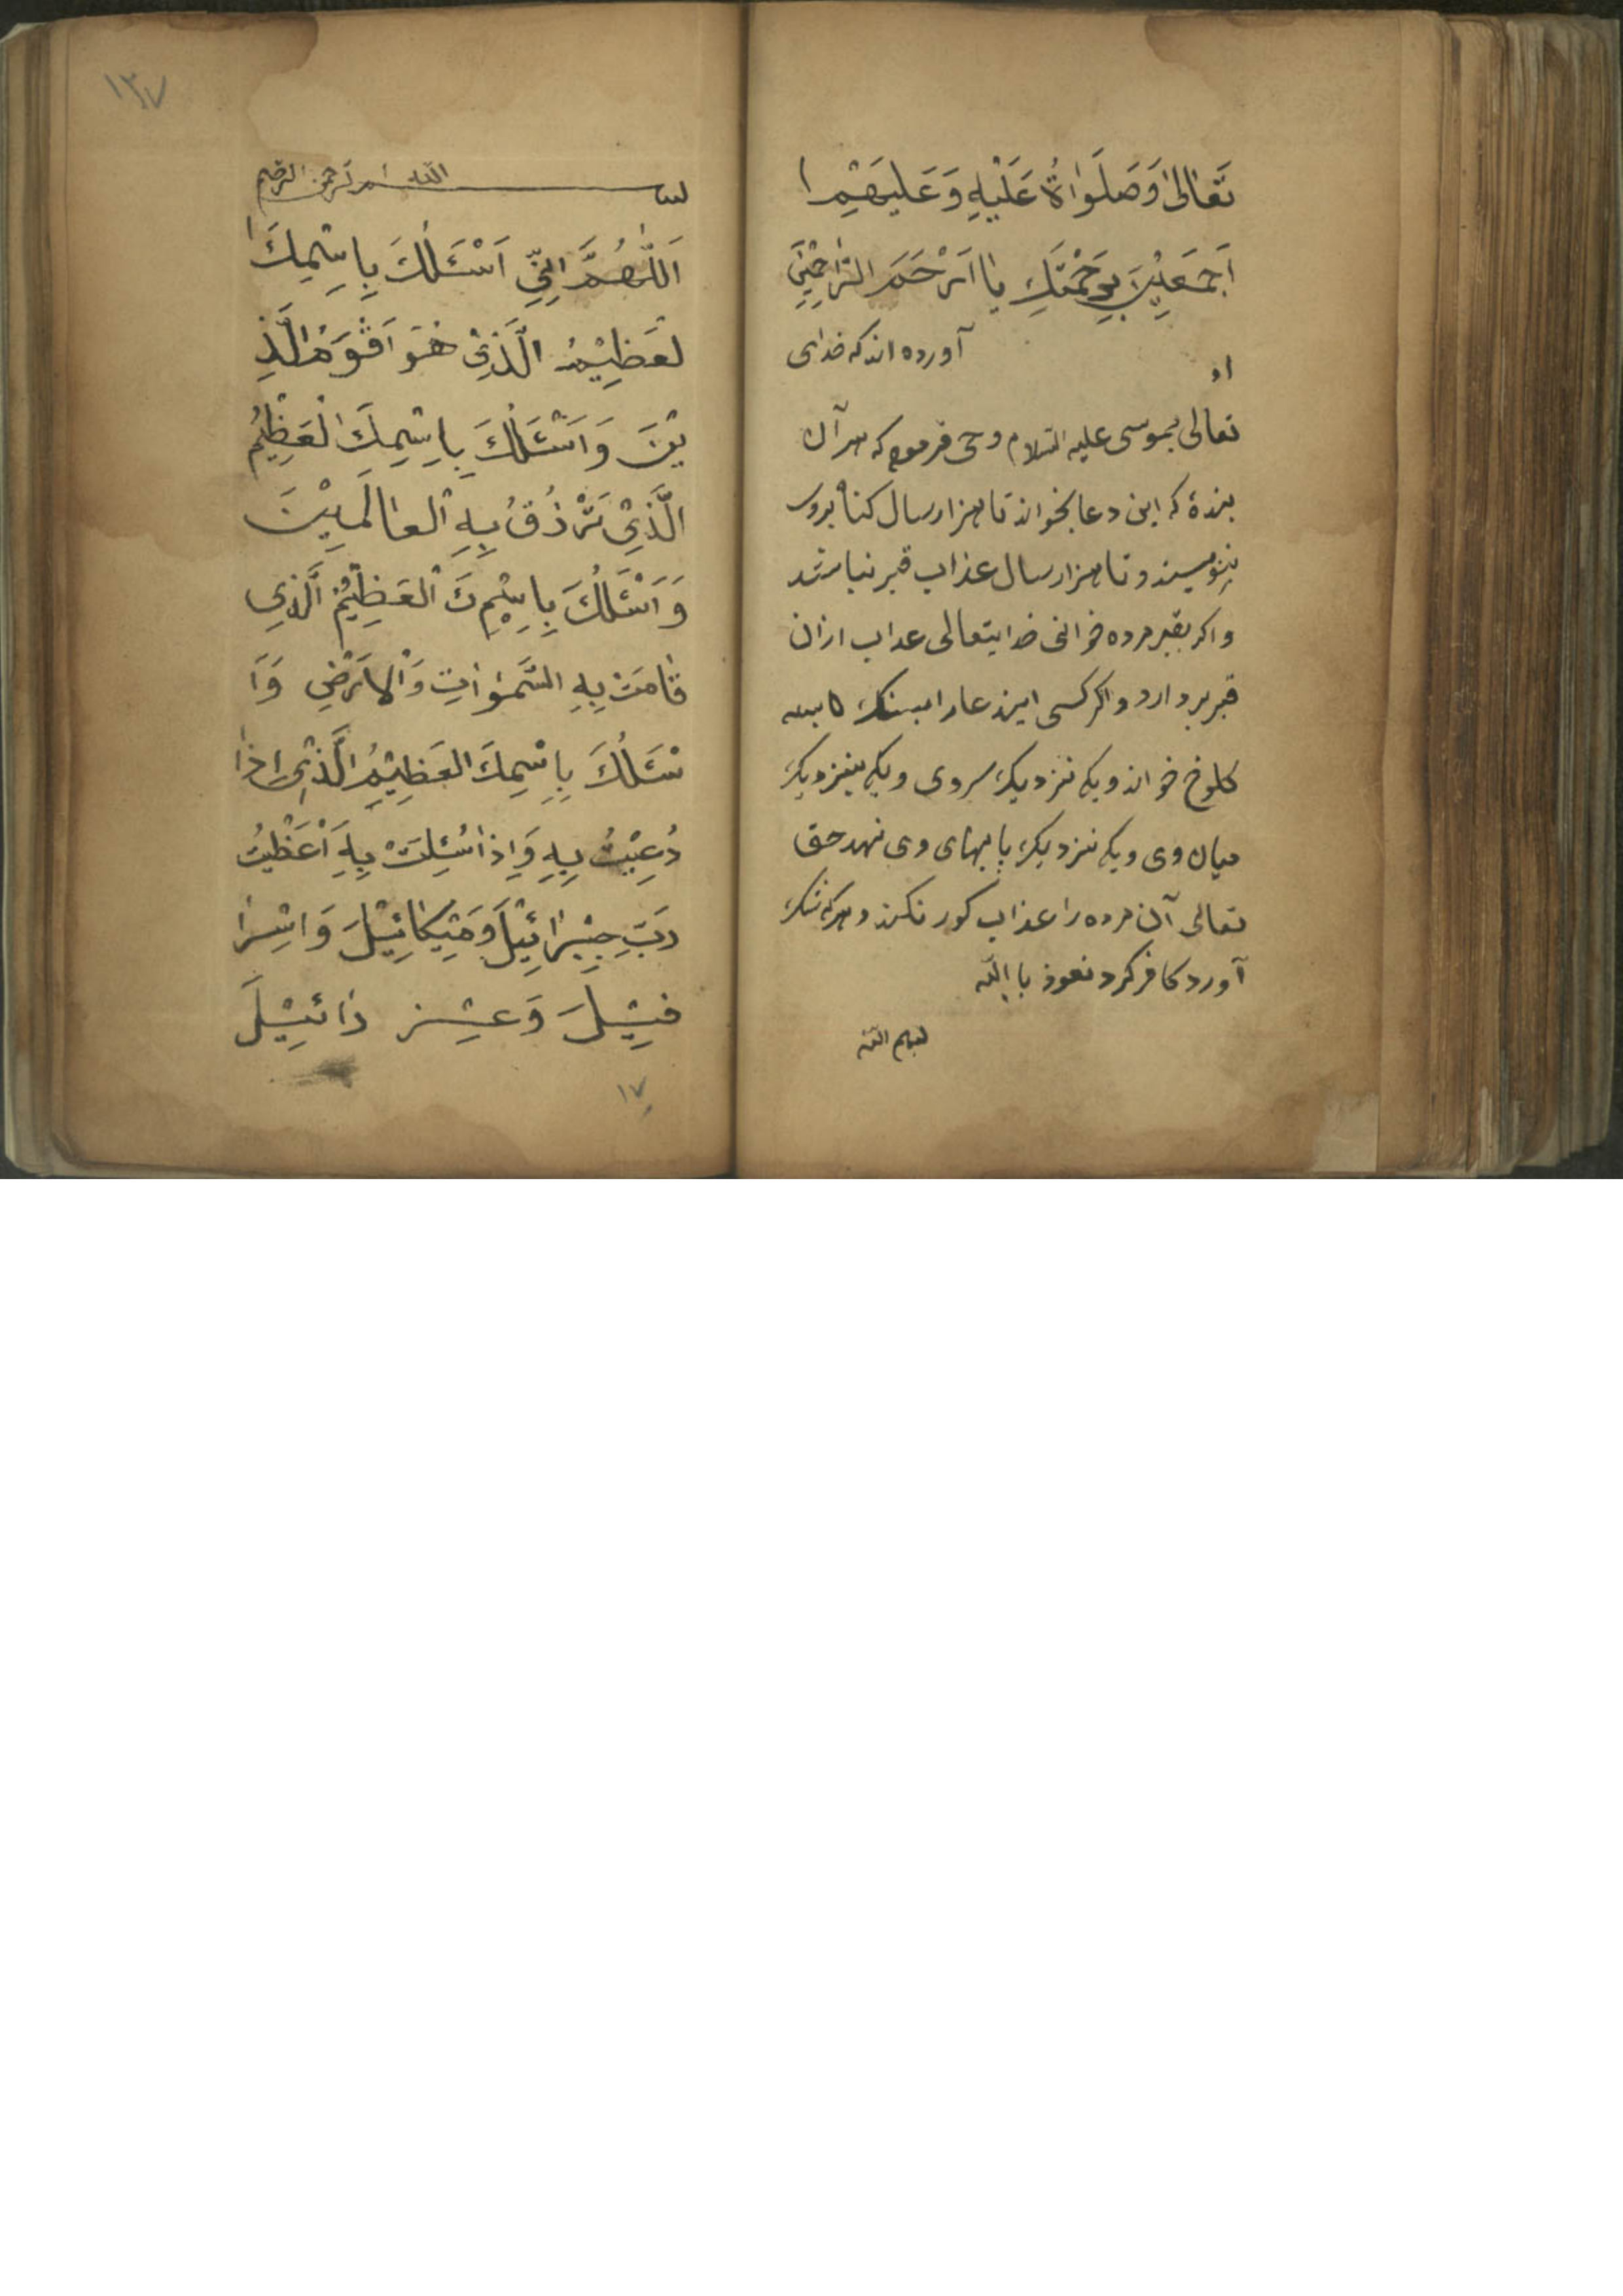 تَعَالىٰ وَصَلَوٰاةُ عَلَيْهِ وَعَلَيهِمْ ا
اَجمَعِيْنَ بِرَحْمَتِكَ يٰا اَرْحَمَ الرّٰاحِمِيْنَ
آورده اندکه خدای
تعالی بموسی علیه السلام وحی فرمود که هر آن
بندهٔ که این دعا بخواند تا هزار سال کناه بروی
ننویسند و تا هزار سال عذاب قبر نباشد
و اکر بقبر مرده خوانی خدایتعالی عداب ازان
قبر بردارد و اکر کسی ایندعا را بسنک
کلوخ خواند و یکی نزدیک سر وی و یکی بنزدیک
میان وی و یکی نزدیک پایهای وی نهد حق
تعالی آن مرده را عذاب کور نکند و هرکه شک
آورد کافر کردد نعوذ با الله
بسم الله
١٣٧
بسم الله الرحمن الرحیم
اَللّٰهُمَّ اِنِّي اَسْئَلُكَ بِاِسْمِكَ ا
لعَظِيْمُ الَّذِيْ هُوَ اَقْوَمُ الَّذِ
يْنَ وَاَسْئَلُكَ بِاِسْمِكَ الْعَظِيْمُ
الَّذِيْ تَرْزُقُ بِهِ الْعٰالَمِيْنَ
وَاَسْئَلُكَ بِاِسْمِكَ الْعَظِيْمُ الَّذِي
قٰامَتْ بِهِ السَّمٰوٰاتِ وَالْاَرْضِ وَاَ
سْئَلُكَ بِاِسْمِكَ العَظِيْمُ الَّذِيْ اِذٰا
دُعِيْتُ بِهِ وَاِذٰا سُئِلَتْ بِهِ اَعْطَيْتُ
رَبِّ جِبْرٰائِيْلَ وَمِيْكٰائِيْلَ وَاِسْرٰا
فِيْلَ وَعِزْ رٰائِيْلَ
١٧